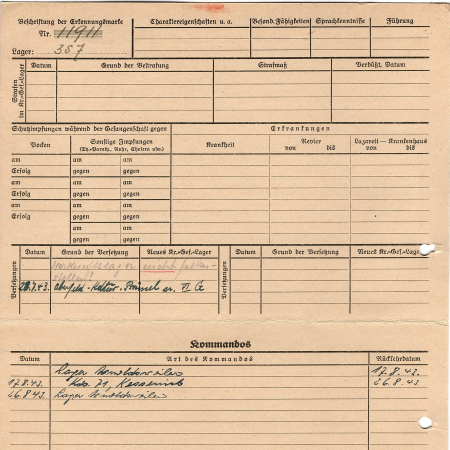 Beschriftung der Erkennungsmarke
Nr. 11911
Lager: 357
Charaktereigenschaften u. a.
Besond. Fähigkeiten
Sprachkenntnisse
Führung
Strafen im Kr.-Gef.-Lager
Datum
Grund der Bestrafung
Strafmaß
Verbüßt, Datum
Schutzimpfungen während der Gefangenschaft gegen
Erkrankungen
Pocken
Sonstige Impfungen
(Ty.-Parath., Ruhr, Cholera usw.)
Krankheit
Revier
von bis
Lazarett — Krankenhaus
von bis
am am am
Erfolg gegen gegen
am am am
Erfolg gegen gegen
am am am
Erfolg gegen gegen
am am
gegen gegen
Versetzungen
Datum Grund der Versetzung Neues Kr.-Gef.-Lager
Versetzungen
Datum Grund der Versetzung Neues Kr.-Gef.-Lager
nicht
28.7.43. VI G
Kommandos
Datum Art des Kommandos Rückkehrdatum
Lager Arnoldsweiler 17.8.43.
17.8.43. Kdo. 71, Kessenich 26.8.43.
26.8.43. Lager Arnoldsweiler